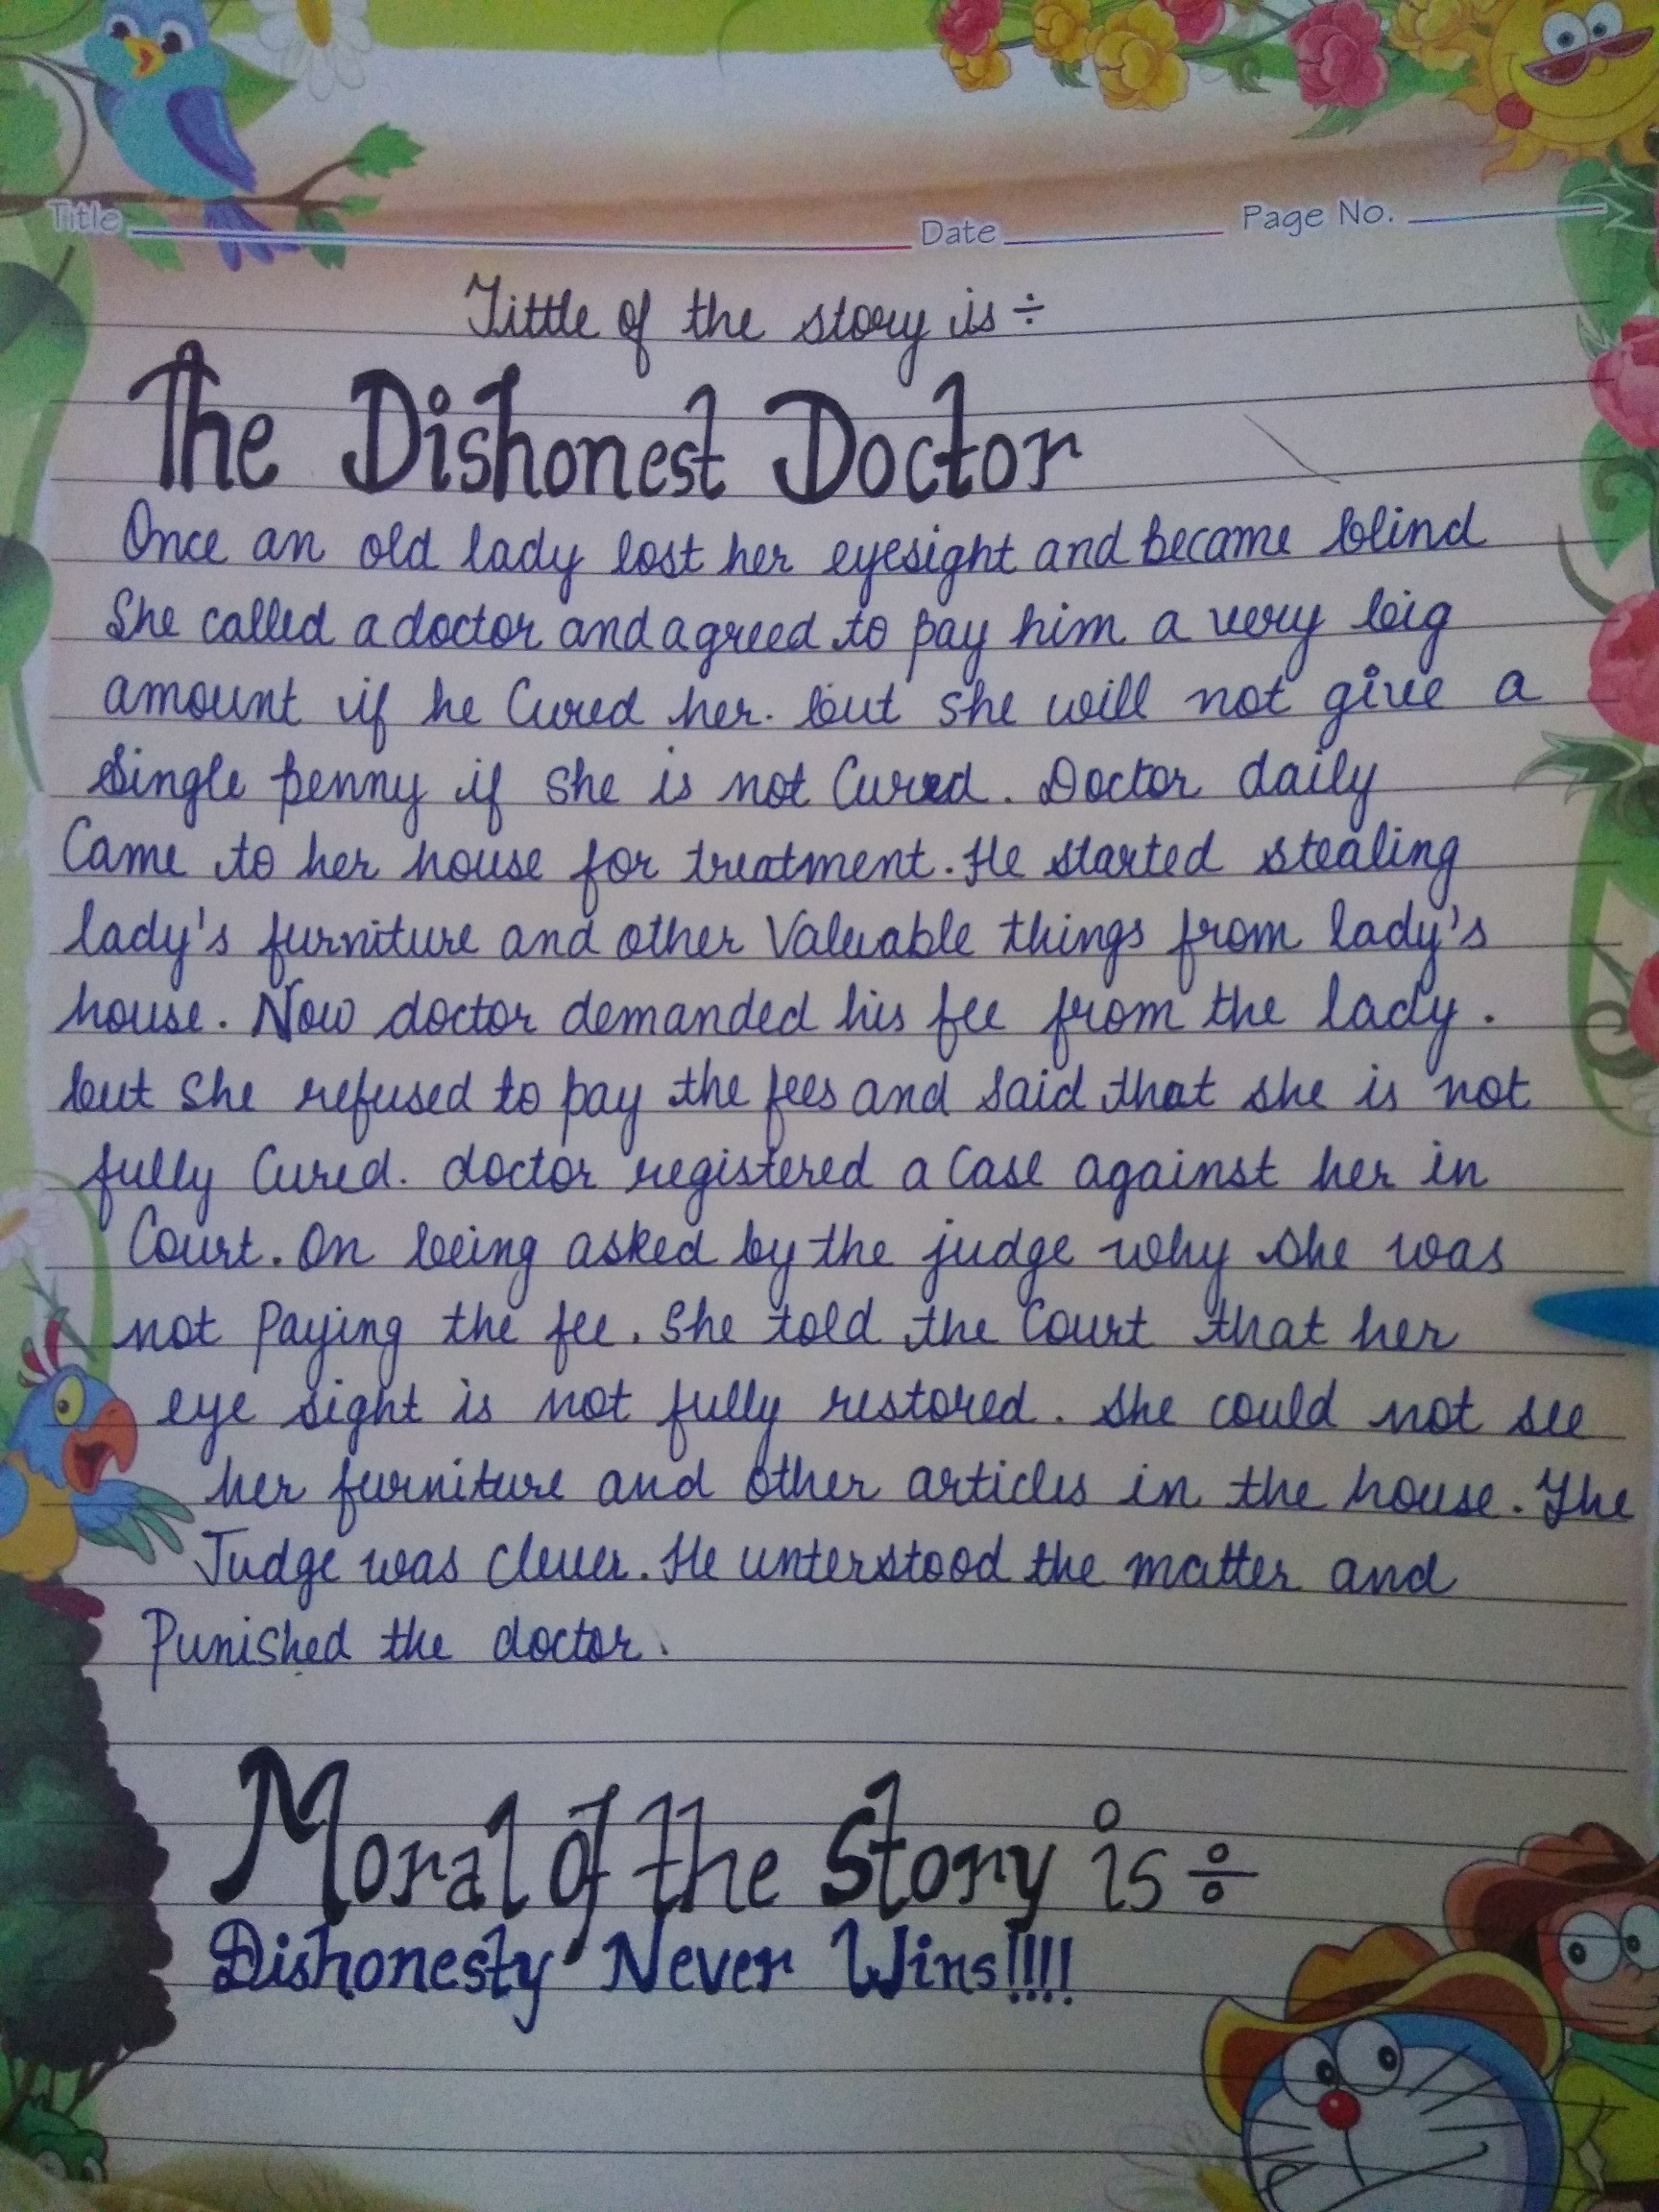 Title Date Page No.
Tittle of the story is ÷
The Dishonest Doctor
Once an old lady lost her eyesight and became blind
She called a doctor and agreed to pay him a very big
amount if he Cured her. but she will not give a
Single penny if she is not Cured. Doctor daily
Came to her house for treatment. He started stealing
lady's furniture and other Valuable things from lady's
house. Now doctor demanded his fee from the lady.
but she refused to pay the fees and said that she is not
fully Cured. doctor registered a Case against her in
Court. On being asked by the judge why she was
not Paying the fee. She told the Court that her
eye sight is not fully restored. She could not see
her furniture and other articles in the house. The
Judge was Clever. He unterstood the matter and
Punished the doctor.
Moral of the Story is ÷
Dishonesty Never Wins!!!!